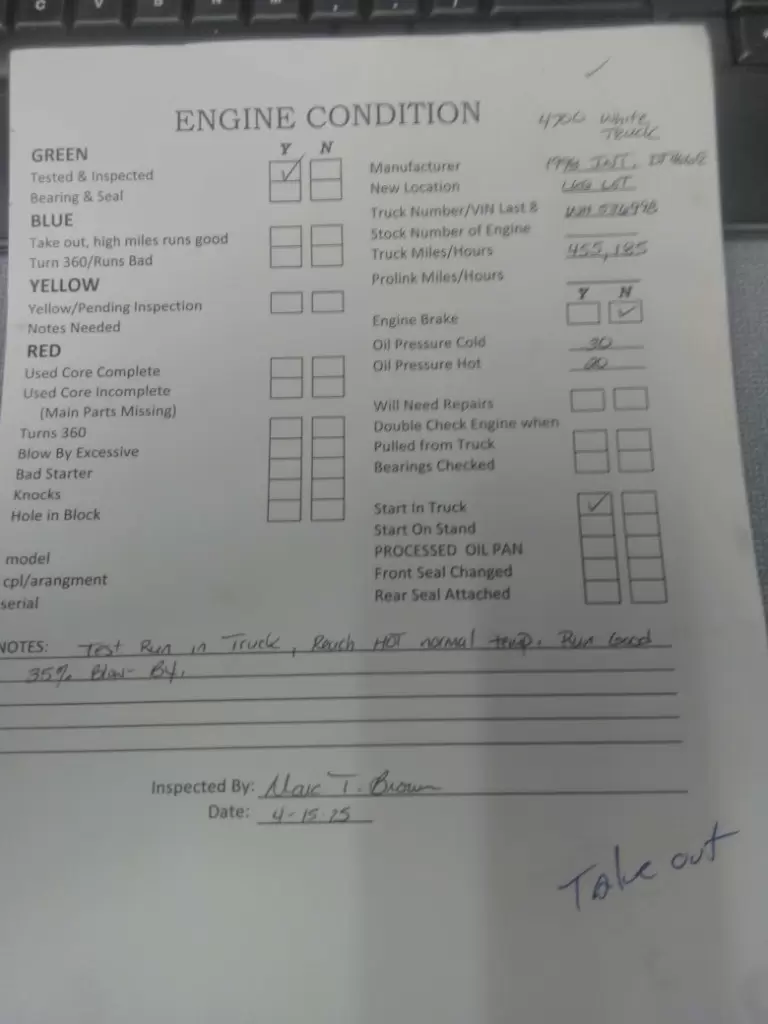 C V B N M , . /
ENGINE CONDITION
4700 White
Truck
Y N
GREEN
Tested & Inspected ✓
Bearing & Seal
BLUE
Take out, high miles runs good
Turn 360/Runs Bad
YELLOW
Yellow/Pending Inspection
Notes Needed
RED
Used Core Complete
Used Core Incomplete
(Main Parts Missing)
Turns 360
Blow By Excessive
Bad Starter
Knocks
Hole in Block
model
cpl/arangment
serial
Manufacturer 1996 INT.
New Location LOT
Truck Number/VIN Last 8
Stock Number of Engine
Truck Miles/Hours 455,185
Prolink Miles/Hours
Y N
Engine Brake ✓
Oil Pressure Cold 30
Oil Pressure Hot 20
Will Need Repairs
Double Check Engine when
Pulled from Truck
Bearings Checked
Start In Truck ✓
Start On Stand
PROCESSED OIL PAN
Front Seal Changed
Rear Seal Attached
NOTES: Test Run in Truck, Reach HOT normal temp. Run Good
35% Blow-By.
Inspected By: Marc T. Brown
Date: 4-15-25
Take out